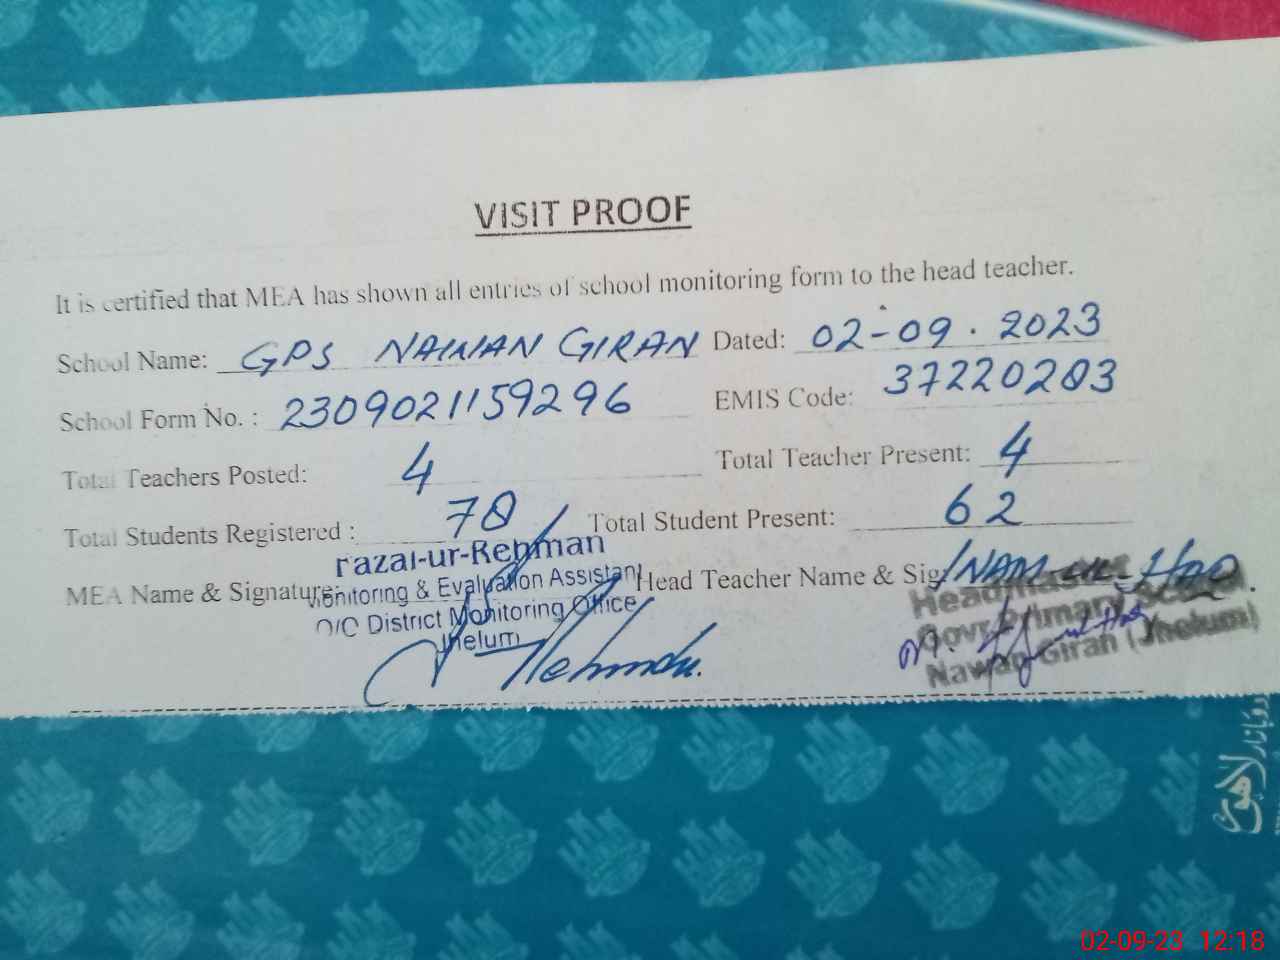 VISIT PROOF
It is certified that MEA has shown all entries of school monitoring form to the head teacher.
School Name: GPS NAWAN GIRAN Dated: 02-09.2023
School Form No. : 2309021159296 EMIS Code: 37220203
Total Teachers Posted: 4 Total Teacher Present: 4
Total Students Registered : 78 Total Student Present: 62
MEA Name & Signature: Head Teacher Name & Sig INAM-ul-Haq.
Fazal-ur-Rehman
Monitoring & Evaluation Assistant
O/O District Monitoring Office
Jhelum
Headmaster
Govt Primary School
Nawan Giran (Jhelum)
لاہور
02-09-23 12:18